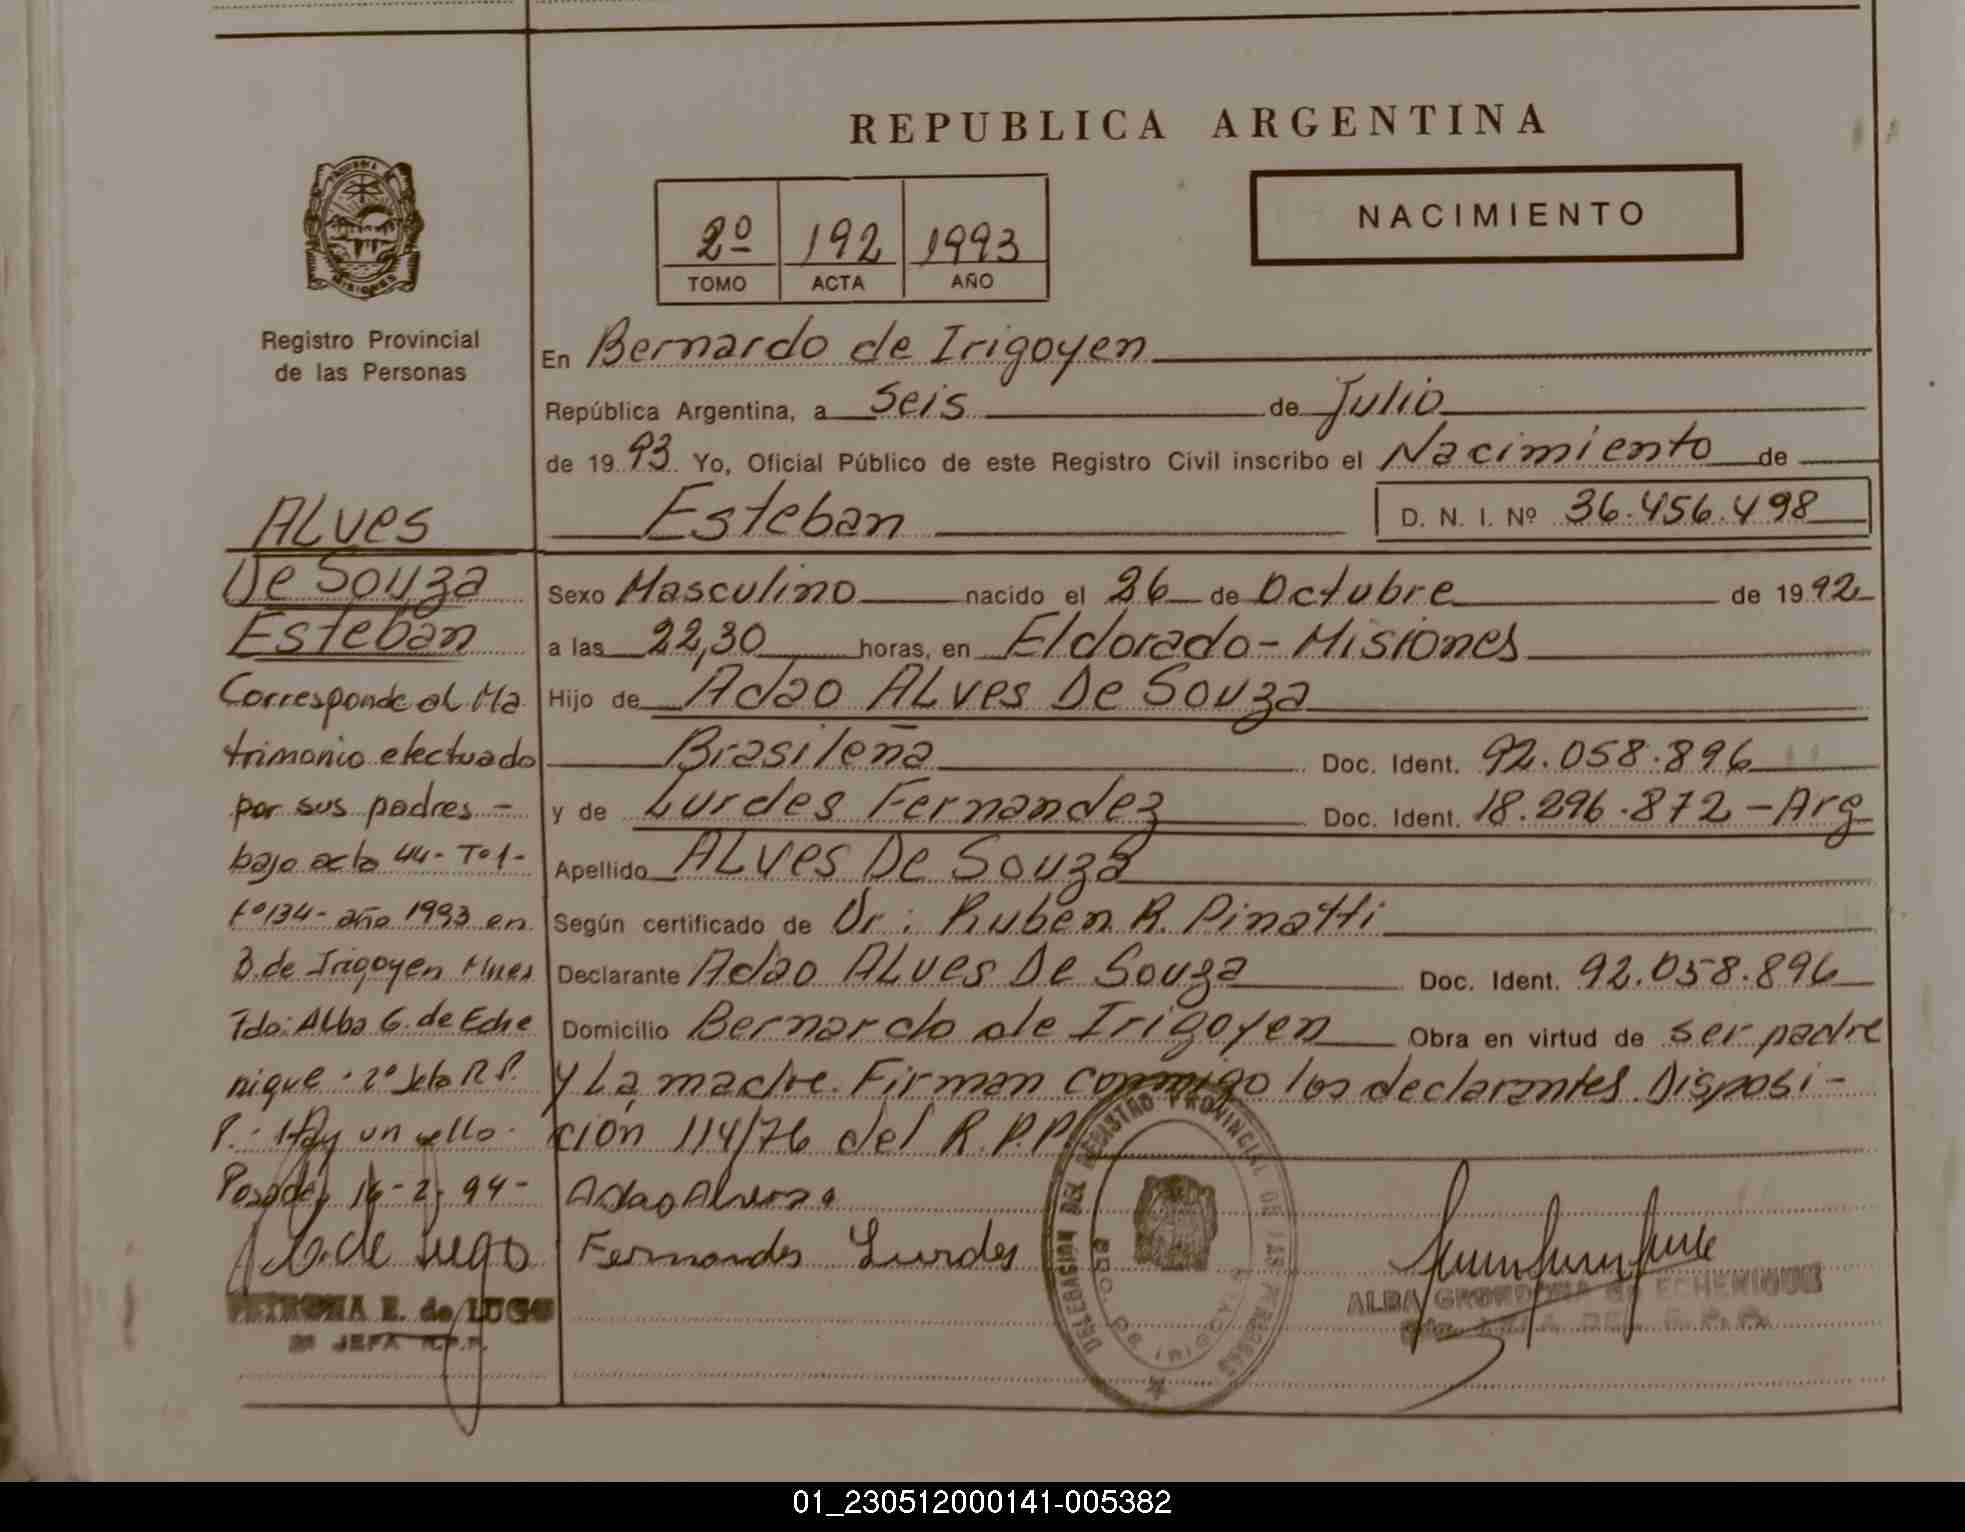 REPUBLICA ARGENTINA
NACIMIENTO
2º 192 1993
TOMO ACTA AÑO
MISIONES
Registro Provincial
de las Personas
En Bernardo de Irigoyen
República Argentina, a Seis de Julio
de 19 93 Yo, Oficial Público de este Registro Civil inscribo el Nacimiento de
Esteban D. N. I. Nº 36.456.498
Sexo Masculino nacido el 26 de Octubre de 19 92
a las 22,30 horas, en Eldorado - Misiones
Hijo de Adao ALves De Souza
Brasileña Doc. Ident. 92.058.896
y de Lurdes Fernandez Doc. Ident. 18.296.872 - Arg
Apellido ALves De Souza
Según certificado de Dr: Ruben R. Pinatti
Declarante Adao ALves De Souza Doc. Ident. 92.058.896
Domicilio Bernardo de Irigoyen Obra en virtud de ser padre
y La madre. Firman conmigo los declarantes. Disposi-
ción 114/76 del R.P.P.
Adao
Fernandes Lurdes
DELEGACIÓN DEL REGISTRO PROVINCIAL DE LAS PERSONAS
BDO. DE IRIGOYEN
ALBA GRONDONA de ECHENIQUE
JEFA DEL R.P.P.
ALves
De Souza
Esteban
Corresponde al Ma
trimonio efectuado
por sus padres -
bajo acta 44- Tº1-
fº134- año 1993 en
B. de Irigoyen Mnes
Fdo: Alba G. de Eche
nique - 2º Jefa R.P.
P.- Hay un sello.
Posadas, 16-2-94-
de Lugo
PETRONA E. de LUGO
2ª JEFA R.P.P.
01_230512000141-005382